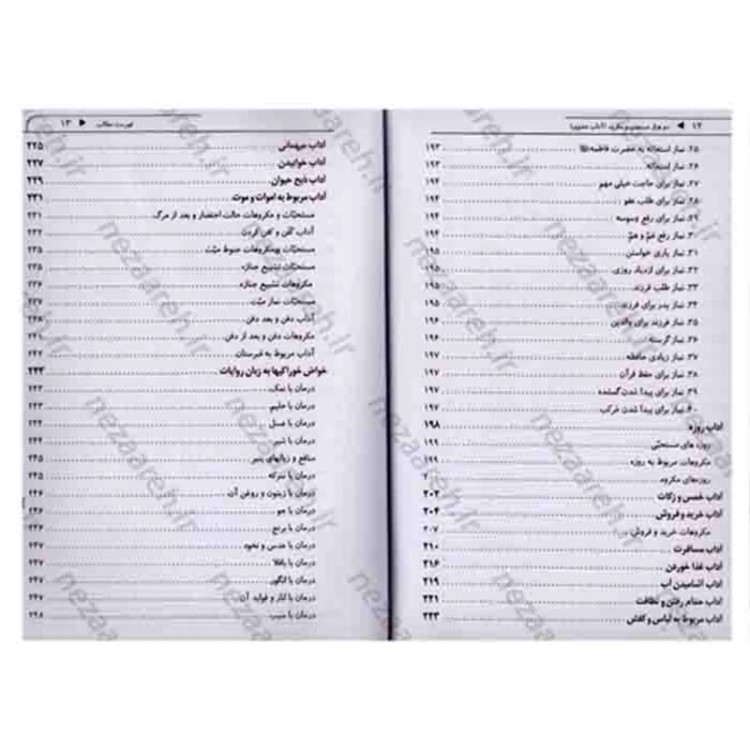 ۱۲ ◀ دو هزار مستحب و مکروه (آداب معنوی)
۲۵. نماز استغاثه به حضرت فاطمه ........ ۱۹۳
۲۶. نماز استغاثه ........ ۱۹۳
۲۷. نماز برای حاجت خیلی مهم ........ ۱۹۴
۲۸. نماز برای طلب عفو ........ ۱۹۴
۲۹. نماز برای رفع وسوسه ........ ۱۹۴
۳۰. نماز رفع غم و هم ........ ۱۹۴
۳۱. نماز یاری خواستن ........ ۱۹۴
۳۲. نماز برای ازدیاد روزی ........ ۱۹۵
۳۳. نماز طلب فرزند ........ ۱۹۵
۳۴. نماز پدر برای فرزند ........ ۱۹۵
۳۵. نماز فرزند برای والدین ........ ۱۹۶
۳۶. نماز گرسنه ........ ۱۹۶
۳۷. نماز زیادی حافظه ........ ۱۹۷
۳۸. نماز برای حفظ قرآن ........ ۱۹۷
۳۹. نماز برای پیدا شدن گمشده ........ ۱۹۷
۴۰. نماز برای پیدا شدن مرکب ........ ۱۹۷
آداب روزه ........ ۱۹۸
روزه های مستحبی ........ ۱۹۹
مکروهات مربوط به روزه ........ ۱۹۹
روزه‌های مکروه ........
آداب خمس و زکات ........ ۲۰۲
آداب خرید و فروش ........ ۲۰۴
مکروهات خرید و فروش ........ ۲۰۷
آداب مسافرت ........ ۲۱۰
آداب غذا خوردن ........ ۲۱۶
آداب آشامیدن آب ........ ۲۱۹
آداب حمام رفتن و نظافت ........ ۲۲۱
آداب مربوط به لباس و کفش ........ ۲۲۳
فهرست مطالب ▶ ۱۳
آداب میهمانی ........ ۲۲۵
آداب خوابیدن ........ ۲۲۷
آداب ذبح حیوان ........ ۲۲۹
آداب مربوط به اموات و موت ........ ۲۳۱
مستحبّات و مکروهات حالت احتضار و بعد از مرگ ........ ۲۳۱
آداب کفن و کفن کردن ........ ۲۳۲
مستحبّات و مکروهات حنوط میّت ........ ۲۳۵
مستحبّات تشییع جنازه ........ ۲۳۵
مکروهات تشییع جنازه ........ ۲۳۶
مستحبّات نماز میّت ........ ۲۳۷
آداب دفن و بعد دفن ........ ۲۳۸
مکروهات دفن و بعد از دفن ........ ۲۴۱
آداب مربوط به قبرستان ........ ۲۴۲
خواص خوراکیها به زبان روایات ........ ۲۴۳
درمان با نمک ........ ۲۴۳
درمان با حلیم ........ ۲۴۳
درمان با عسل ........ ۲۴۴
درمان با شیر ........ ۲۴۴
منافع و زیانهای پنیر ........ ۲۴۵
درمان با سرکه ........ ۲۴۵
درمان با زیتون و روغن آن ........ ۲۴۶
درمان با جو ........ ۲۴۶
درمان با برنج ........ ۲۴۶
درمان با عدس و نخود ........ ۲۴۶
درمان با باقلا ........ ۲۴۷
درمان با انگور ........ ۲۴۷
درمان با انار و فواید آن ........ ۲۴۷
درمان با سیب ........ ۲۴۸
nezaareh.ir